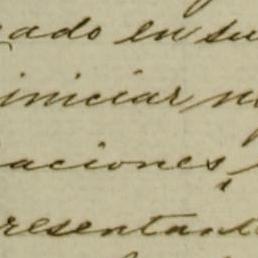 cado en su
iniciar
aciones,
resentant